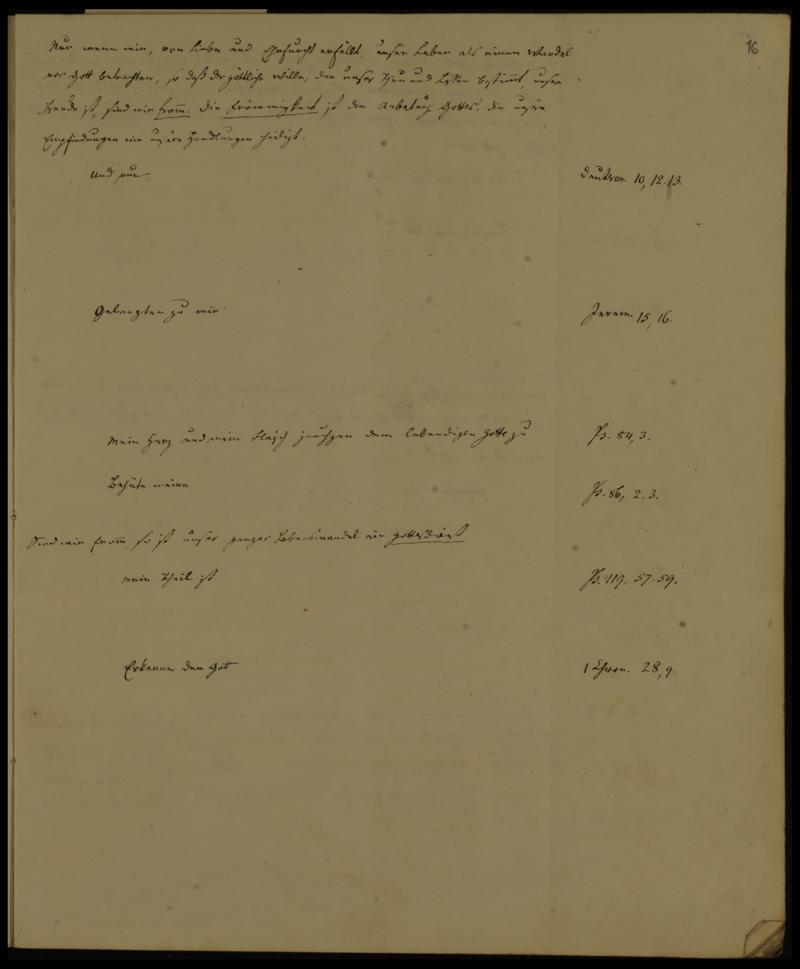 16
Nur wenn wir, von Liebe und Ehrfurcht erfüllt, unser Leben als einen Wandel
vor Gott betrachten, so daß der göttliche Wille, der unser Thun und Lassen bestimmt, unsere
Freude ist, sind wir fromm. Die Frömmigkeit ist die Anbetung Gottes, die unsere
Empfindungen wie unsere Handlungen heiligt.
Und nun, Deuteron. 10, 12.13.
Gelangten zu mir Jerem. 15, 16.
Mein Herz und mein Fleisch jauchzen dem lebendigen Gotte zu Ps. 84, 3.
Behüte meine Ps. 86, 2.3.
Sind wir fromm so ist unser ganzer Lebenswandel ein Gottesdienst
Mein Theil ist Ps. 119, 57-59.
Erkenne den Gott 1 Chron. 28, 9.